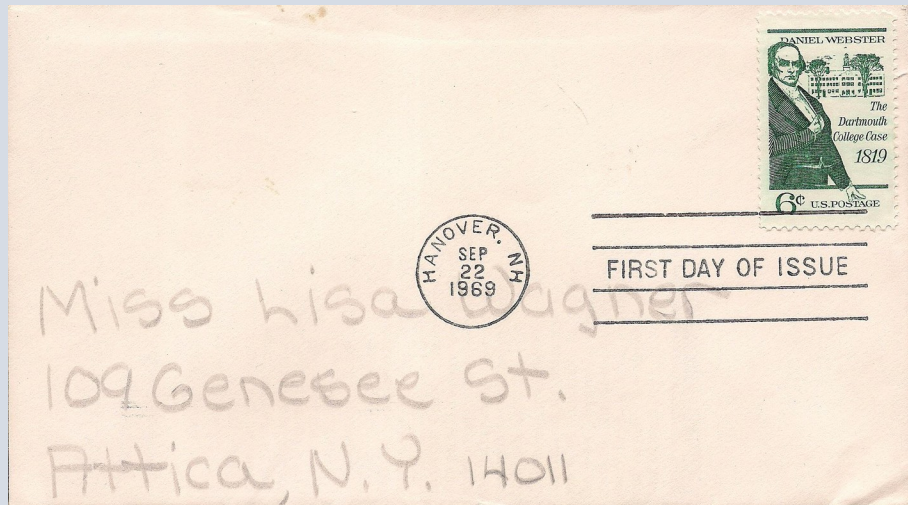 DANIEL WEBSTER
The
Dartmouth
College Case
1819
6¢ U.S. POSTAGE
HANOVER, NH
SEP
22
1969
FIRST DAY OF ISSUE
Miss Lisa Wagner
109 Genesee St.
Attica, N.Y. 14011